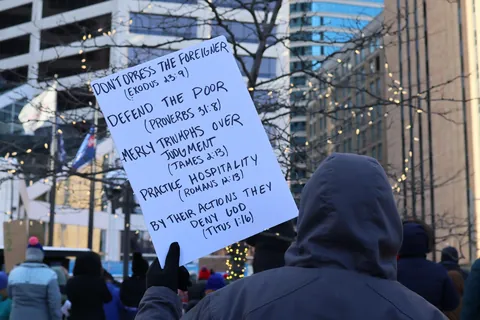 DON'T OPRESS THE FOREIGNER
(EXODUS 23:9)
DEFEND THE POOR
(PROVERBS 31:8)
MERCY TRIUMPHS OVER
JUDGMENT
(JAMES 2:13)
PRACTICE HOSPITALITY
(ROMANS 12:13)
BY THEIR ACTIONS THEY
DENY GOD
(TITUS 1:16)